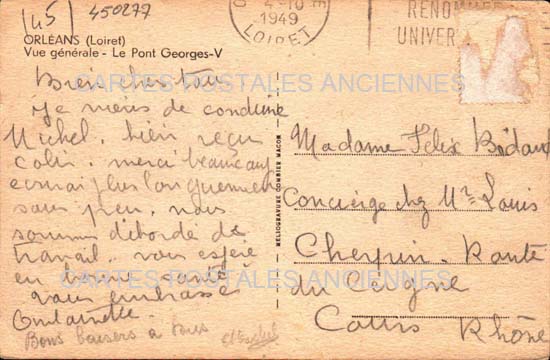 145) 450277
4-10
1949
LOIRET
RENOMMÉE
UNIVER
ORLÉANS (Loiret)
Vue générale - Le Pont Georges-V
Bien chers tous
Je viens de conduire
Michel, bien reçu
colis, merci beaucoup
écrirai plus longuement
sous peu, nous
sommes débordé de
travail, vous espère
en bonne santé
vous embrasse
Bons baisers à tous
HELIOGRAVURE COMBIER MACON
Madame Félix Bidaud
Concièrge chez Mr Louis
Cherpin - Route
du Cergne
Cours Rhône
CARTES POSTALES ANCIENNES
CARTES POSTALES ANCIENNES